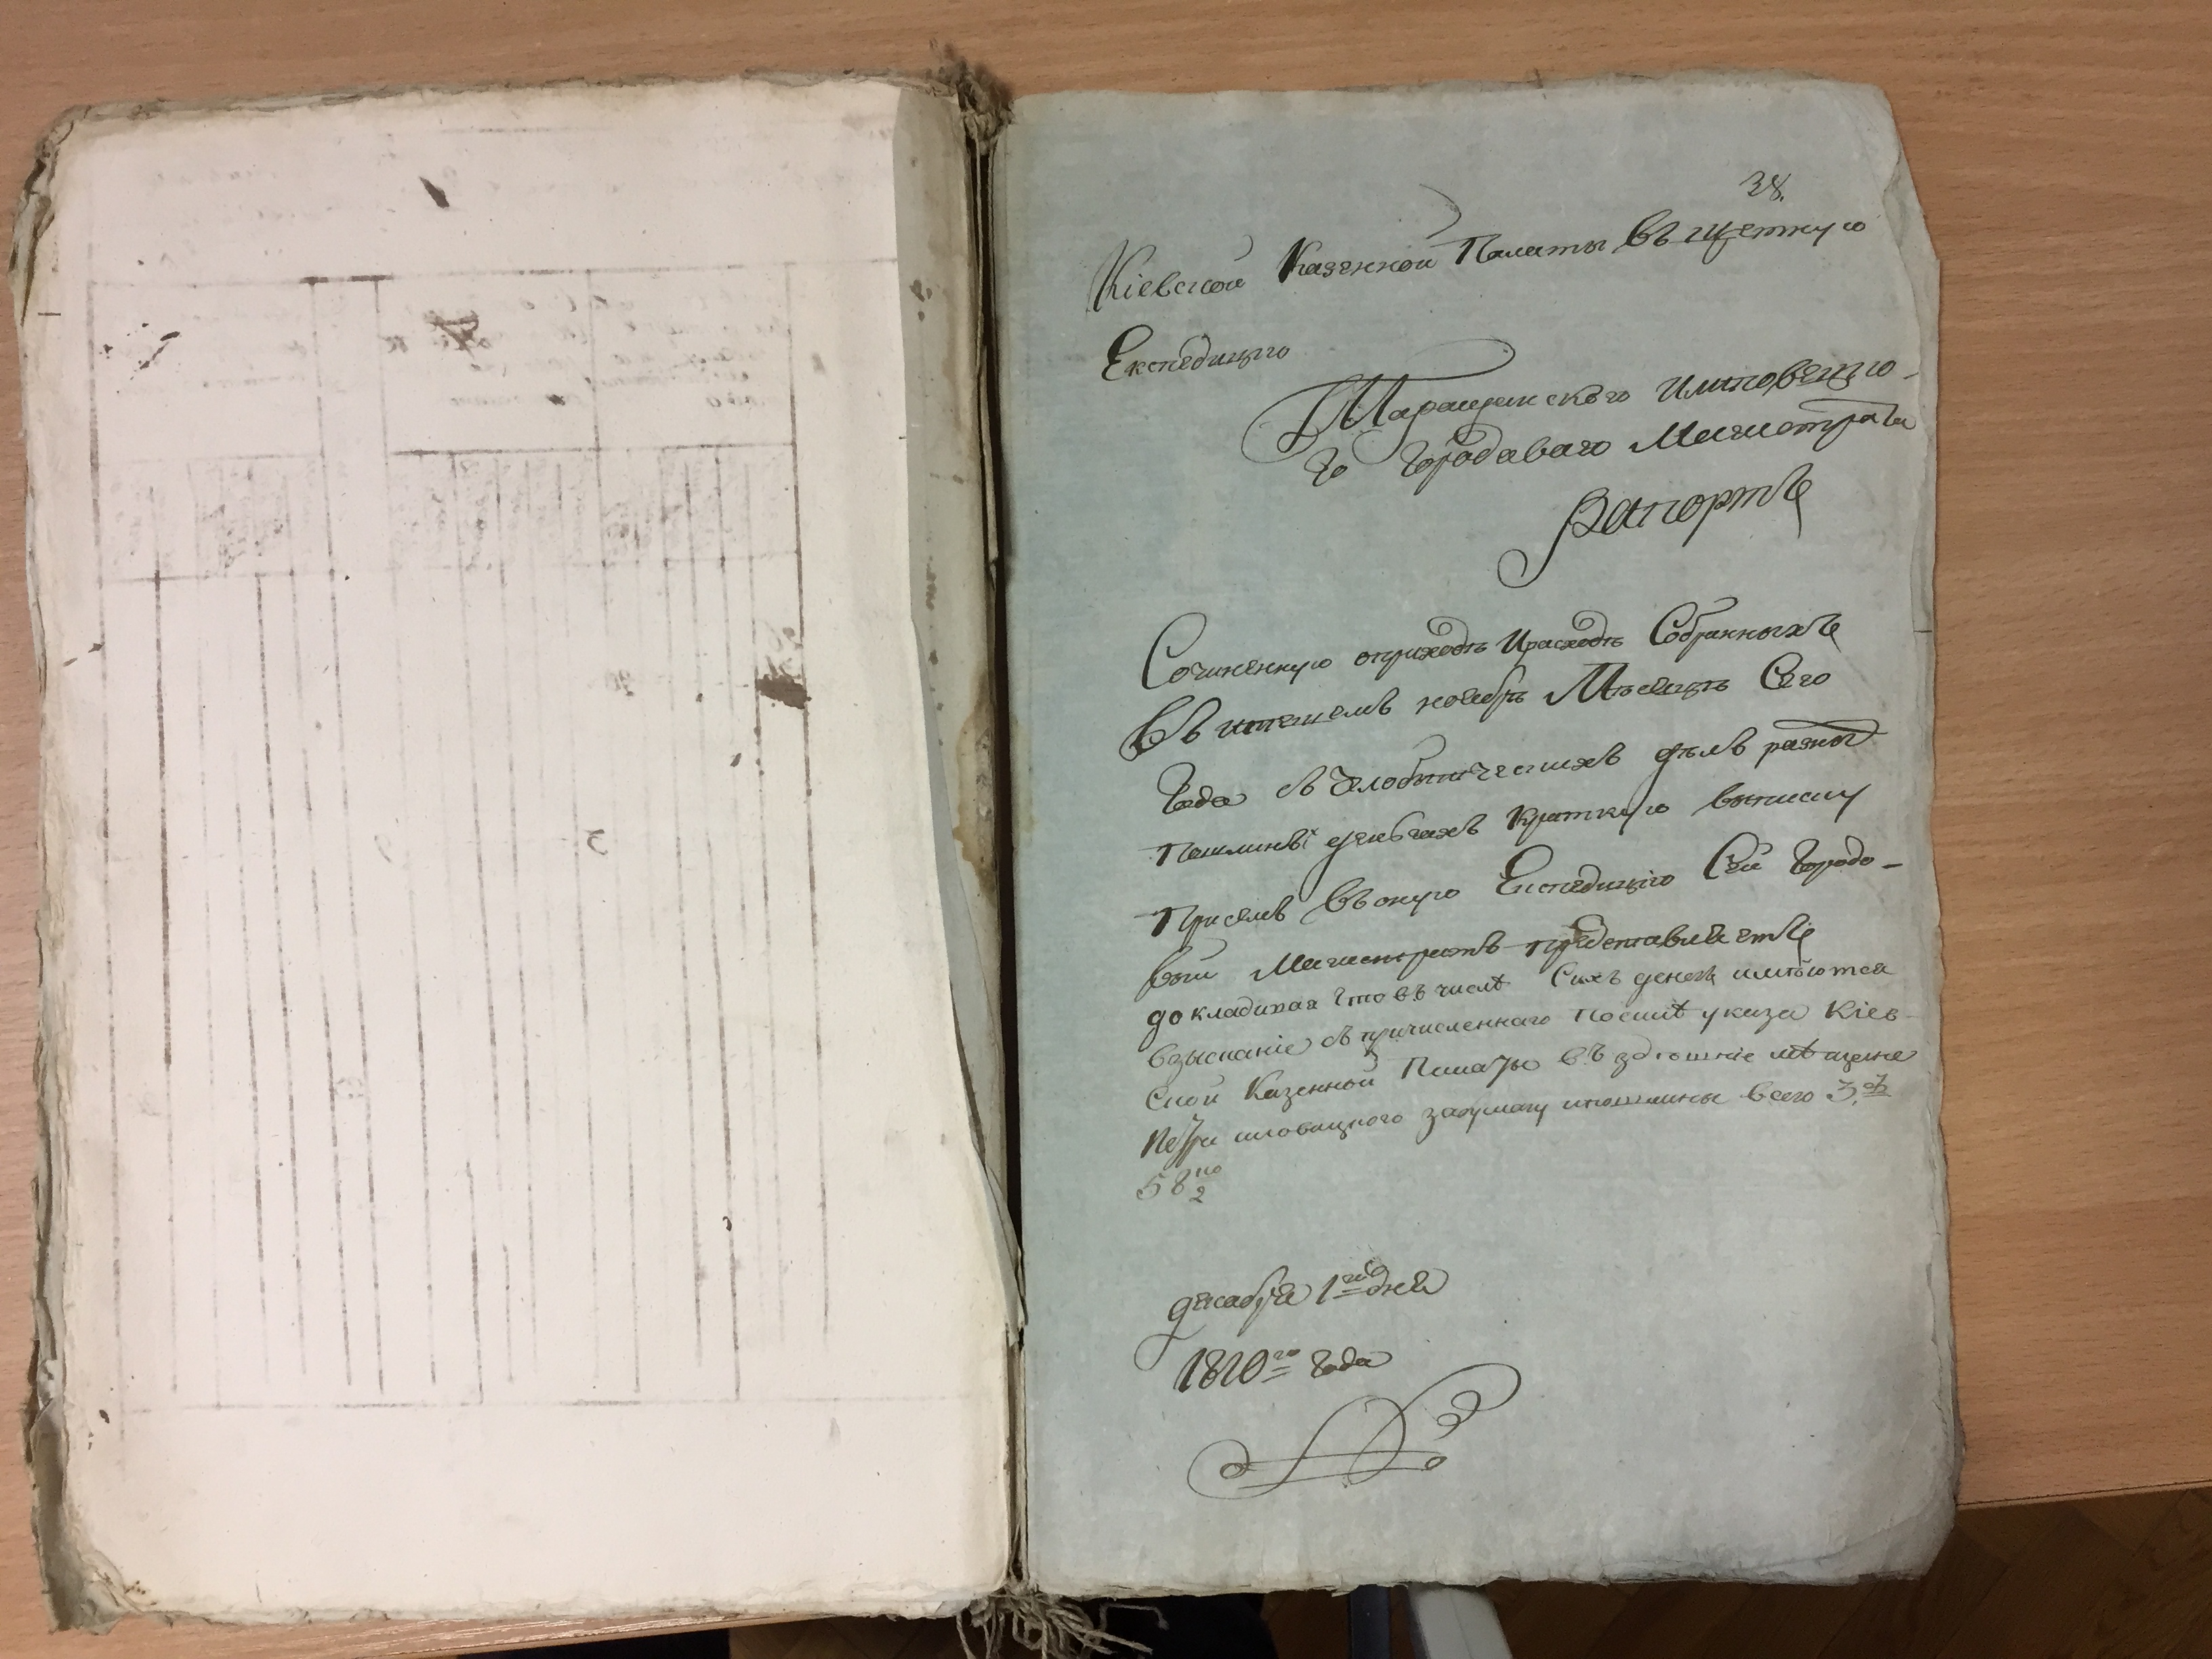 38.
Кіевской Казенной Палаты въ щетную
Експедицию
Таращанскаго Имяновенно-
го Городаваго Магистрата
Рапортъ
Сочиненную оприходѣ Ирасходѣ Собранныхъ
Въ истекшемъ ноебрѣ Мѣсецѣ Сего
Года съ Челобитческихъ дѣлъ
пошлинъ деньгахъ Краткую выписку
При семъ въ оную Експедицию Сей Городо-
вый Магистратъ представляетъ
докладивая что въ числѣ Сихъ денегъ имѣются
взысканіе съ причисленнаго посилѣ указа Кіев-
ской Казенной Палаты въ здешніе мѣщане
Петра забумагу ипошлины всего 3.
58 ко 2
декабря 1го дня
1810го Года